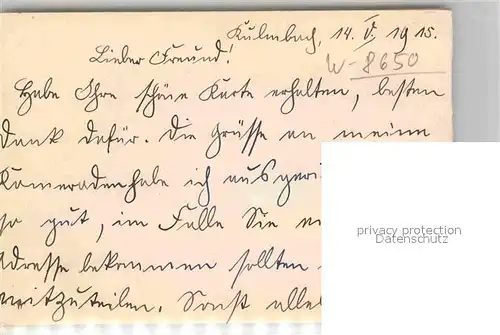 Kulmbach, 14. V. 1915.
W-8650
Lieber Freund!
Habe Ihre schöne Karte erhalten, besten
Dank dafür. Die Grüsse an meine
Kameraden habe ich ausgeri
so gut, im Falle Sie
Adresse bekommen sollten
mitzuteilen. Sonst alle
privacy protection
Datenschutz